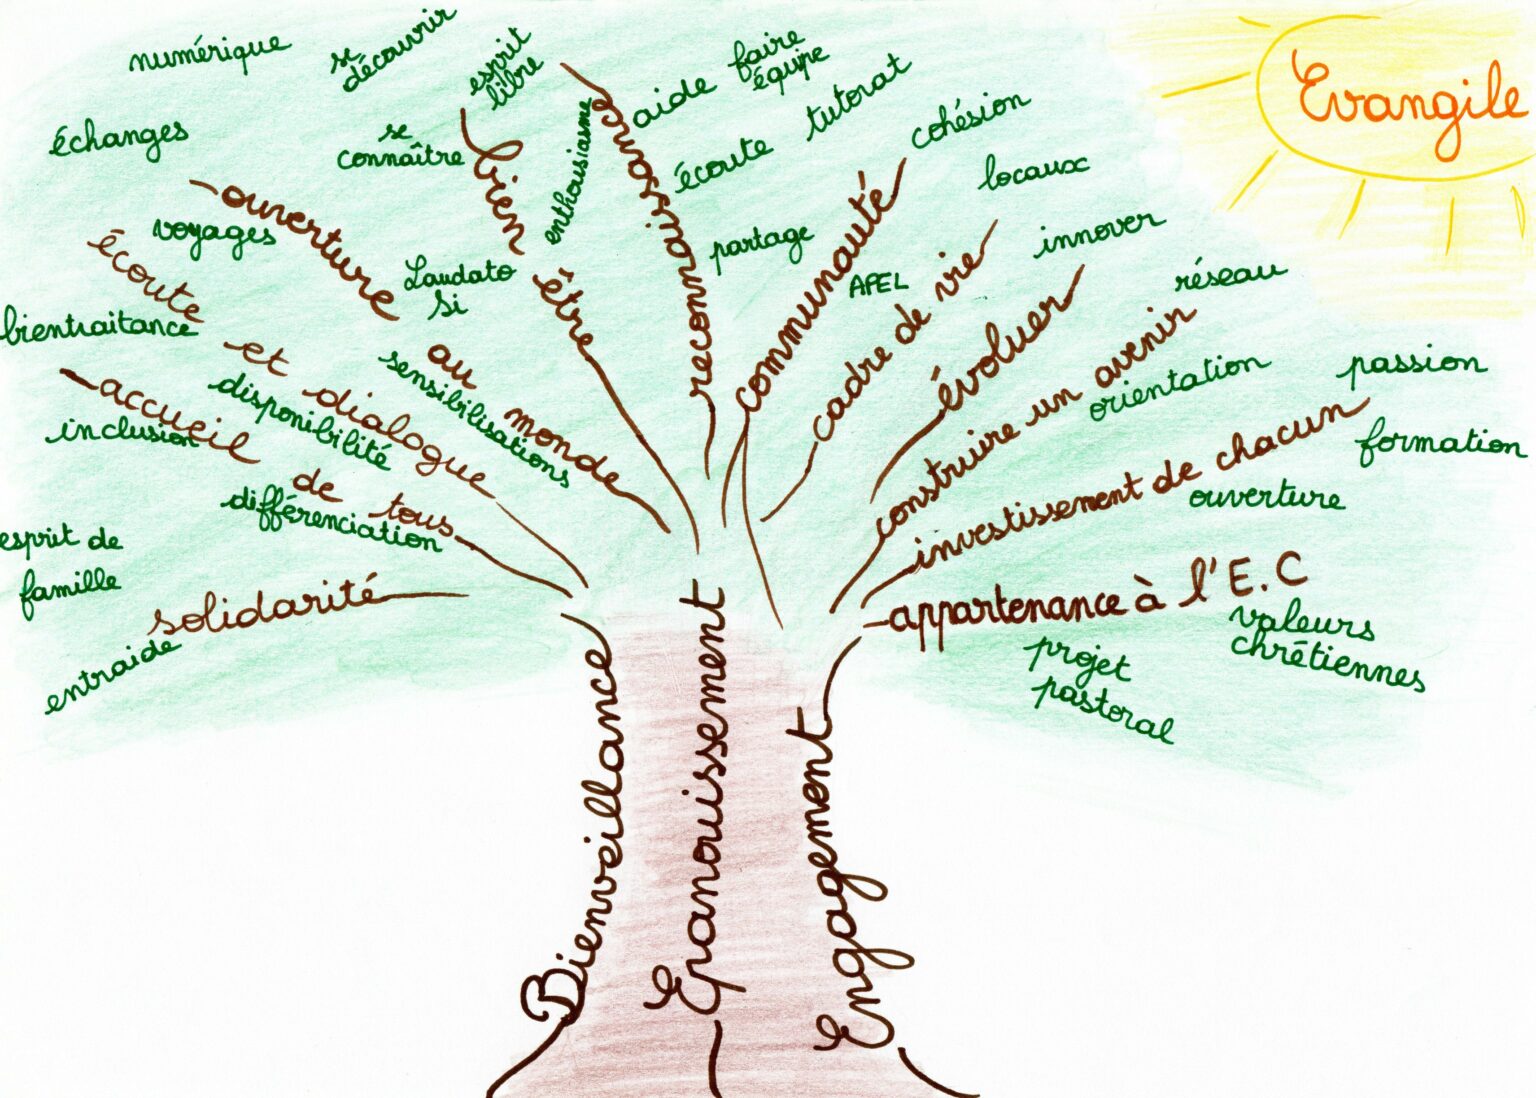 numérique
se
découvrir
esprit
libre
enthousiasme
aide
faire
équipe
Evangile
échanges
se
connaître
bien être
reconnaissance
écoute
tutorat
cohésion
locaux
ouverture au monde
voyages
Laudato
Si
partage
communauté
APEL
cadre de vie
innover
écoute et dialogue
bientraitance
sensibilisations
évoluer
réseau
construire un avenir
orientation
passion
accueil de tous
inclusion
disponibilité
différenciation
investissement de chacun
formation
ouverture
esprit de
famille
solidarité
entraide
appartenance à l'E.C
valeurs
chrétiennes
projet
pastoral
Bienveillance
Epanouissement
Engagement